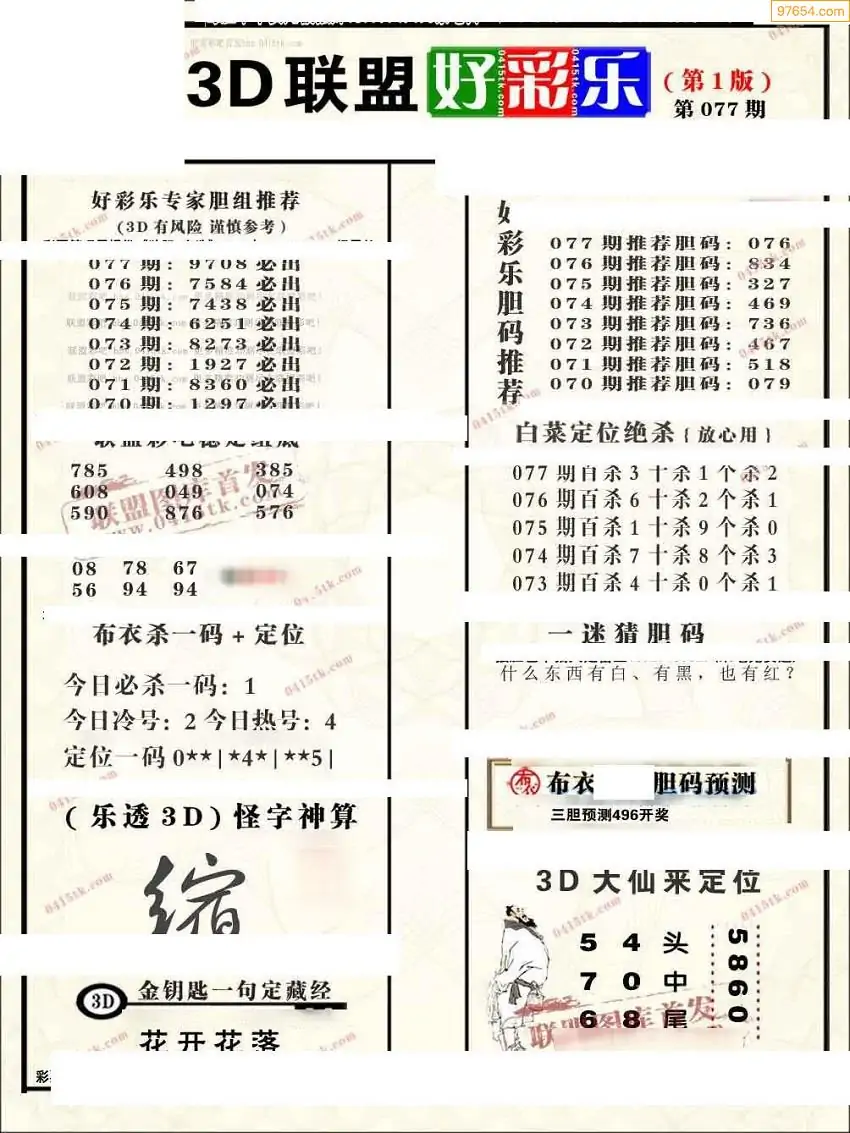 97654.com
3D联盟 好彩乐
(第1版)
第077期
好彩乐专家胆组推荐
(3D有风险 谨慎参考)
077期: 9708必出
076期: 7584必出
075期: 7438必出
074期: 6251必出
073期: 8273必出
072期: 1927必出
071期: 8360必出
070期: 1297必出
785 498 385
608 049 074
590 876 576
联盟图库首发
www.0415tk.com
08 78 67
56 94 94
布衣杀一码+定位
今日必杀一码: 1
今日冷号: 2 今日热号: 4
定位一码 0**|*4*|**5|
(乐透3D)怪字神算
缩
3D 金钥匙一句定藏经
花开花落
好彩乐胆码推荐
077期推荐胆码: 076
076期推荐胆码: 834
075期推荐胆码: 327
074期推荐胆码: 469
073期推荐胆码: 736
072期推荐胆码: 467
071期推荐胆码: 518
070期推荐胆码: 079
白菜定位绝杀{放心用}
077期百杀3十杀1个杀2
076期百杀6十杀2个杀1
075期百杀1十杀9个杀0
074期百杀7十杀8个杀3
073期百杀4十杀0个杀1
一迷猜胆码
什么东西有白、有黑，也有红?
布衣 胆码预测
三胆预测496开奖
3D大仙来定位
5 4 头
7 0 中
6 8 尾
5860
联盟图库首发
0415tk.com